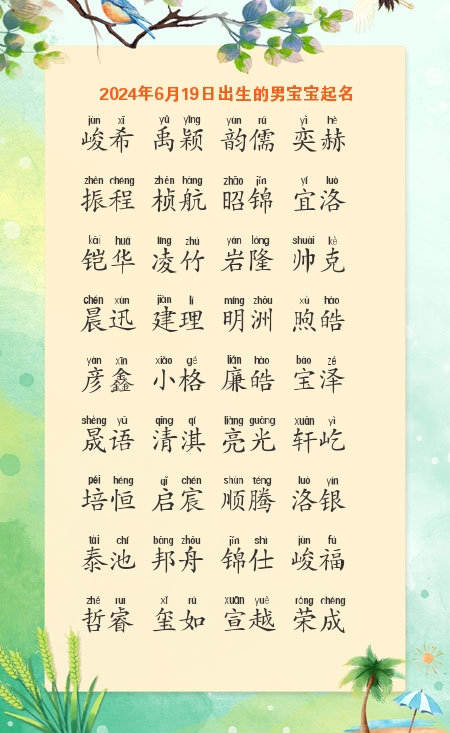 2024年6月19日出生的男宝宝起名
jùn xī yǔ yǐng yùn rú yì hè
峻希 禹颖 韵儒 奕赫
zhèn chéng zhēn háng zhāo jǐn yí luò
振程 桢航 昭锦 宜洛
kǎi huá líng zhú yán lóng shuài kè
铠华 凌竹 岩隆 帅克
chén xùn jiàn lǐ míng zhōu xù hào
晨迅 建理 明洲 煦皓
yàn xīn xiǎo gé lián hào bǎo zé
彦鑫 小格 廉皓 宝泽
shèng yǔ qīng qí liàng guāng xuān yì
晟语 清淇 亮光 轩屹
péi héng qǐ chén shùn téng luò yín
培恒 启宸 顺腾 洛银
tài chí bāng zhōu jǐn shì jùn fú
泰池 邦舟 锦仕 峻福
zhé ruì xǐ rú xuān yuè róng chéng
哲睿 玺如 宣越 荣成